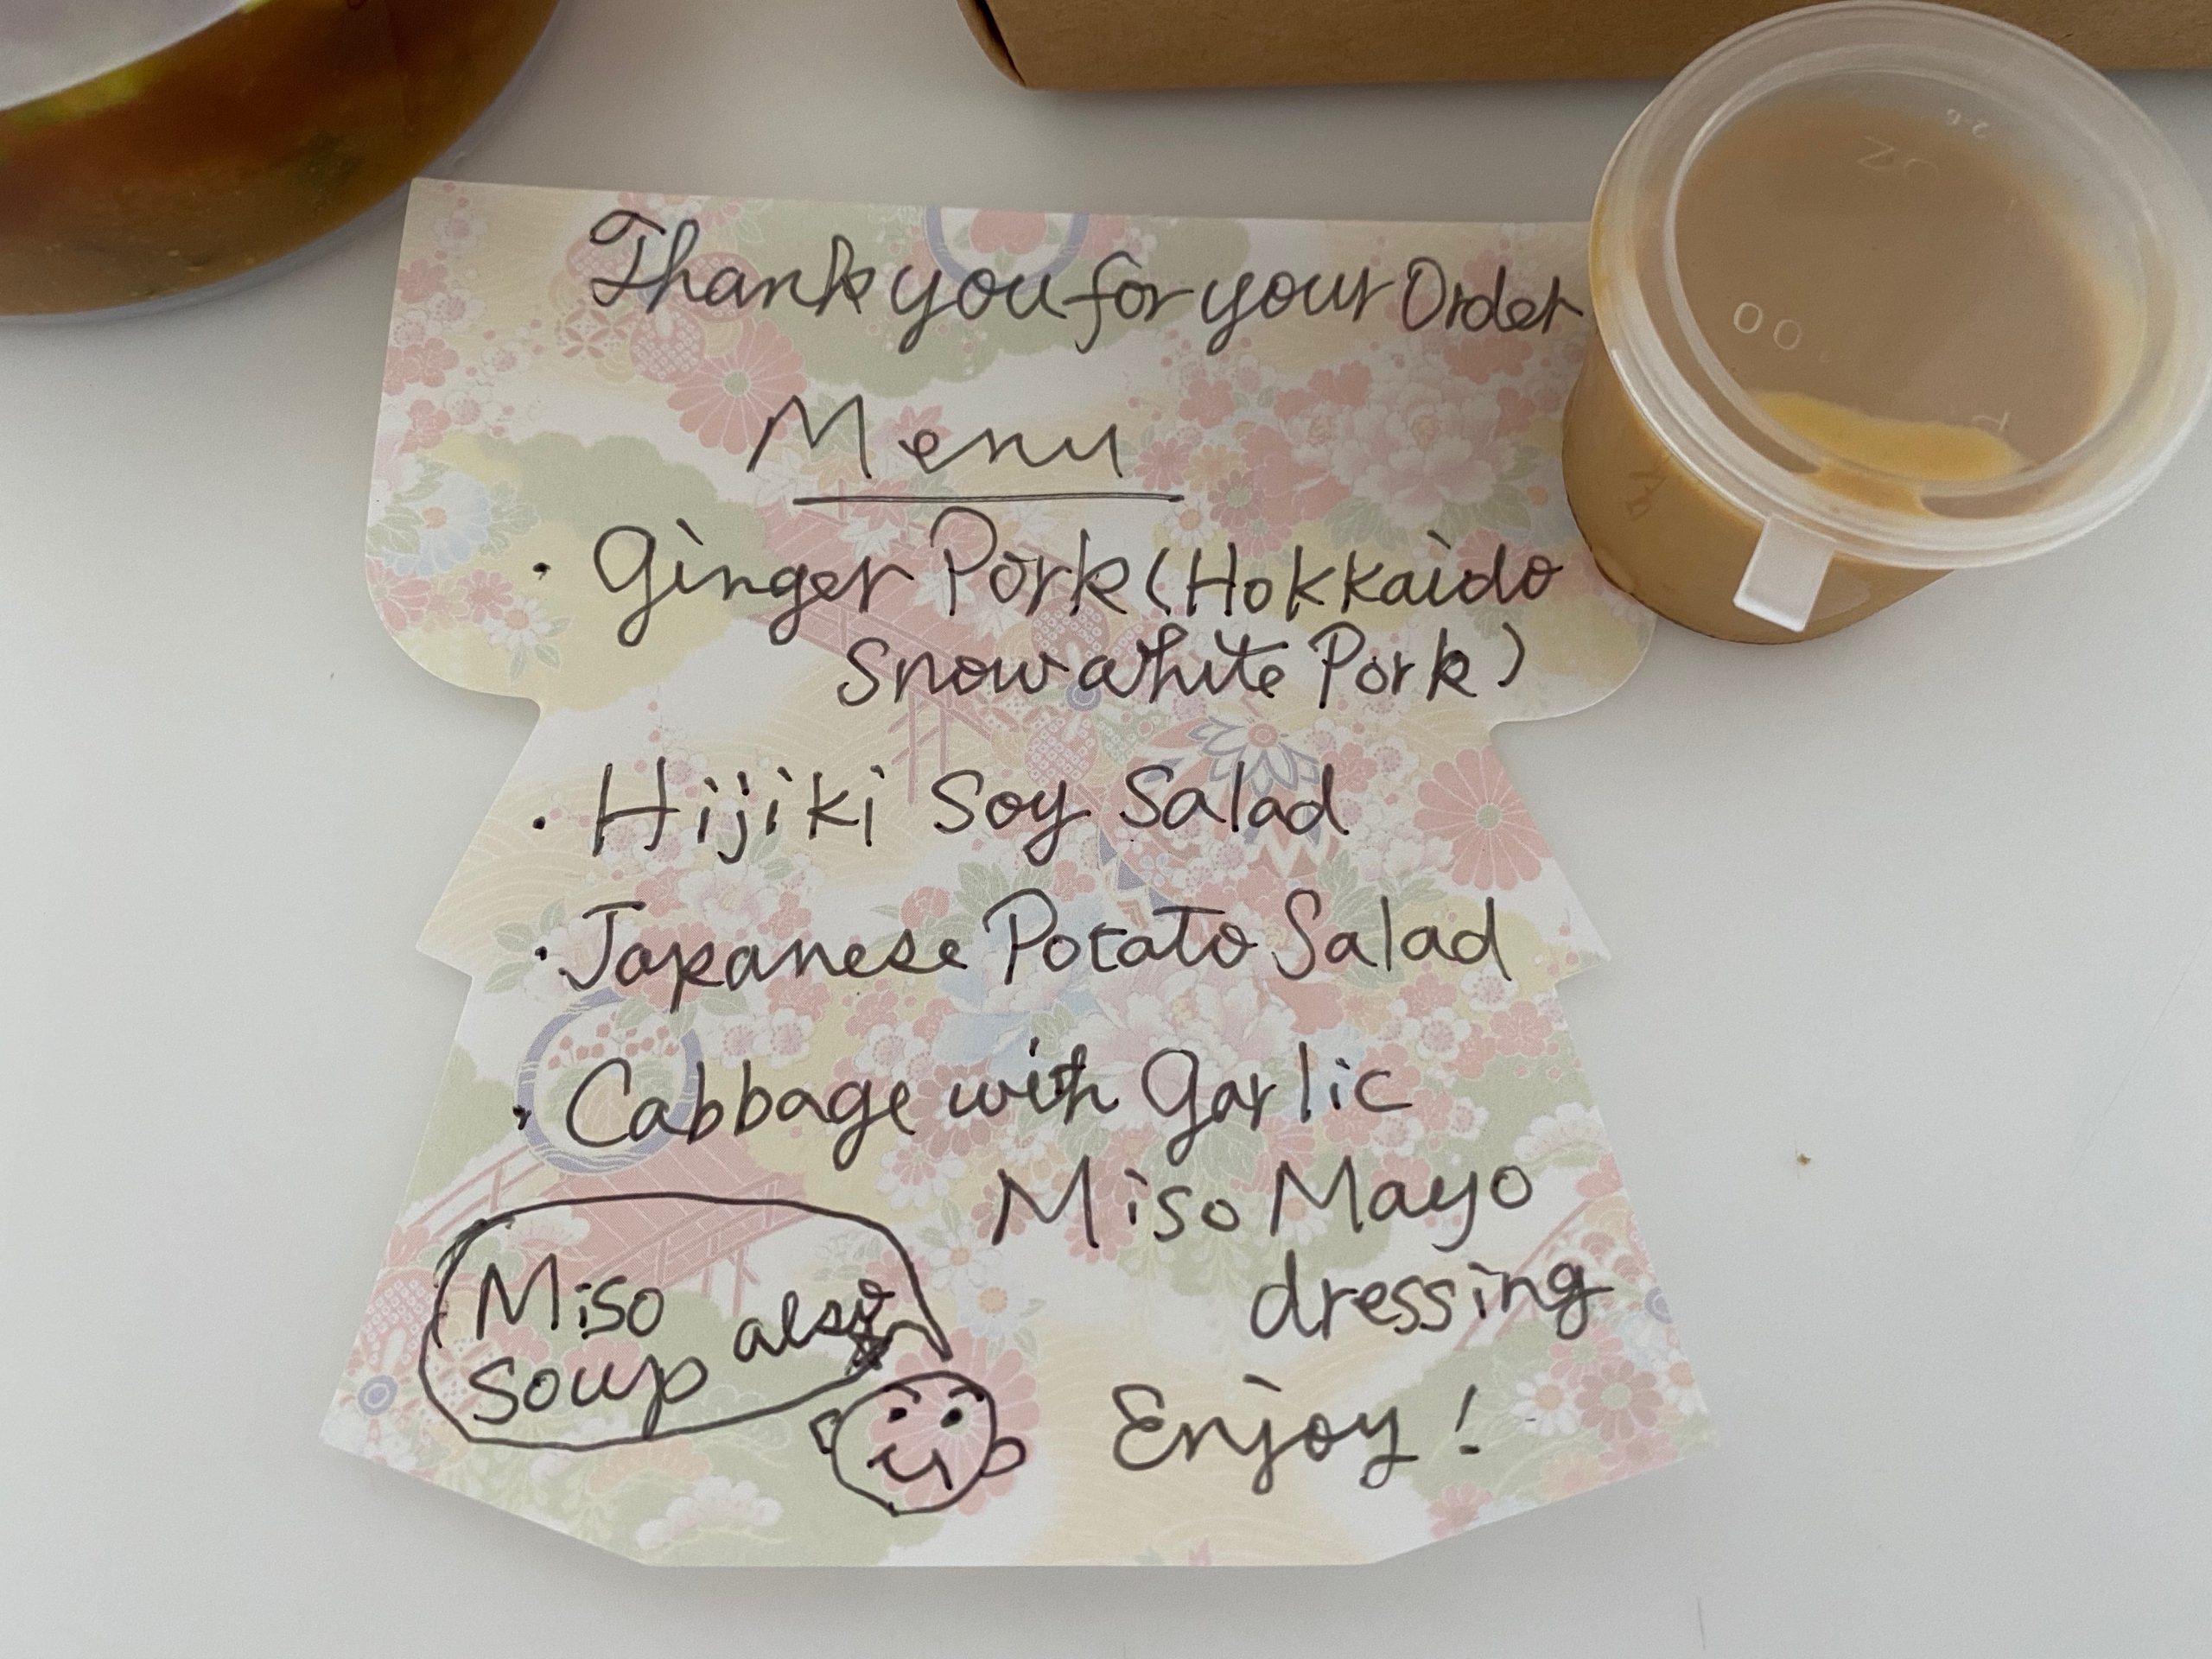 Thank you for your Order
Menu
· Ginger Pork (Hokkaido
Snow white Pork)
· Hijiki Soy Salad
· Japanese Potato Salad
· Cabbage with Garlic
Miso Mayo
dressing
Miso
soup also
Enjoy!